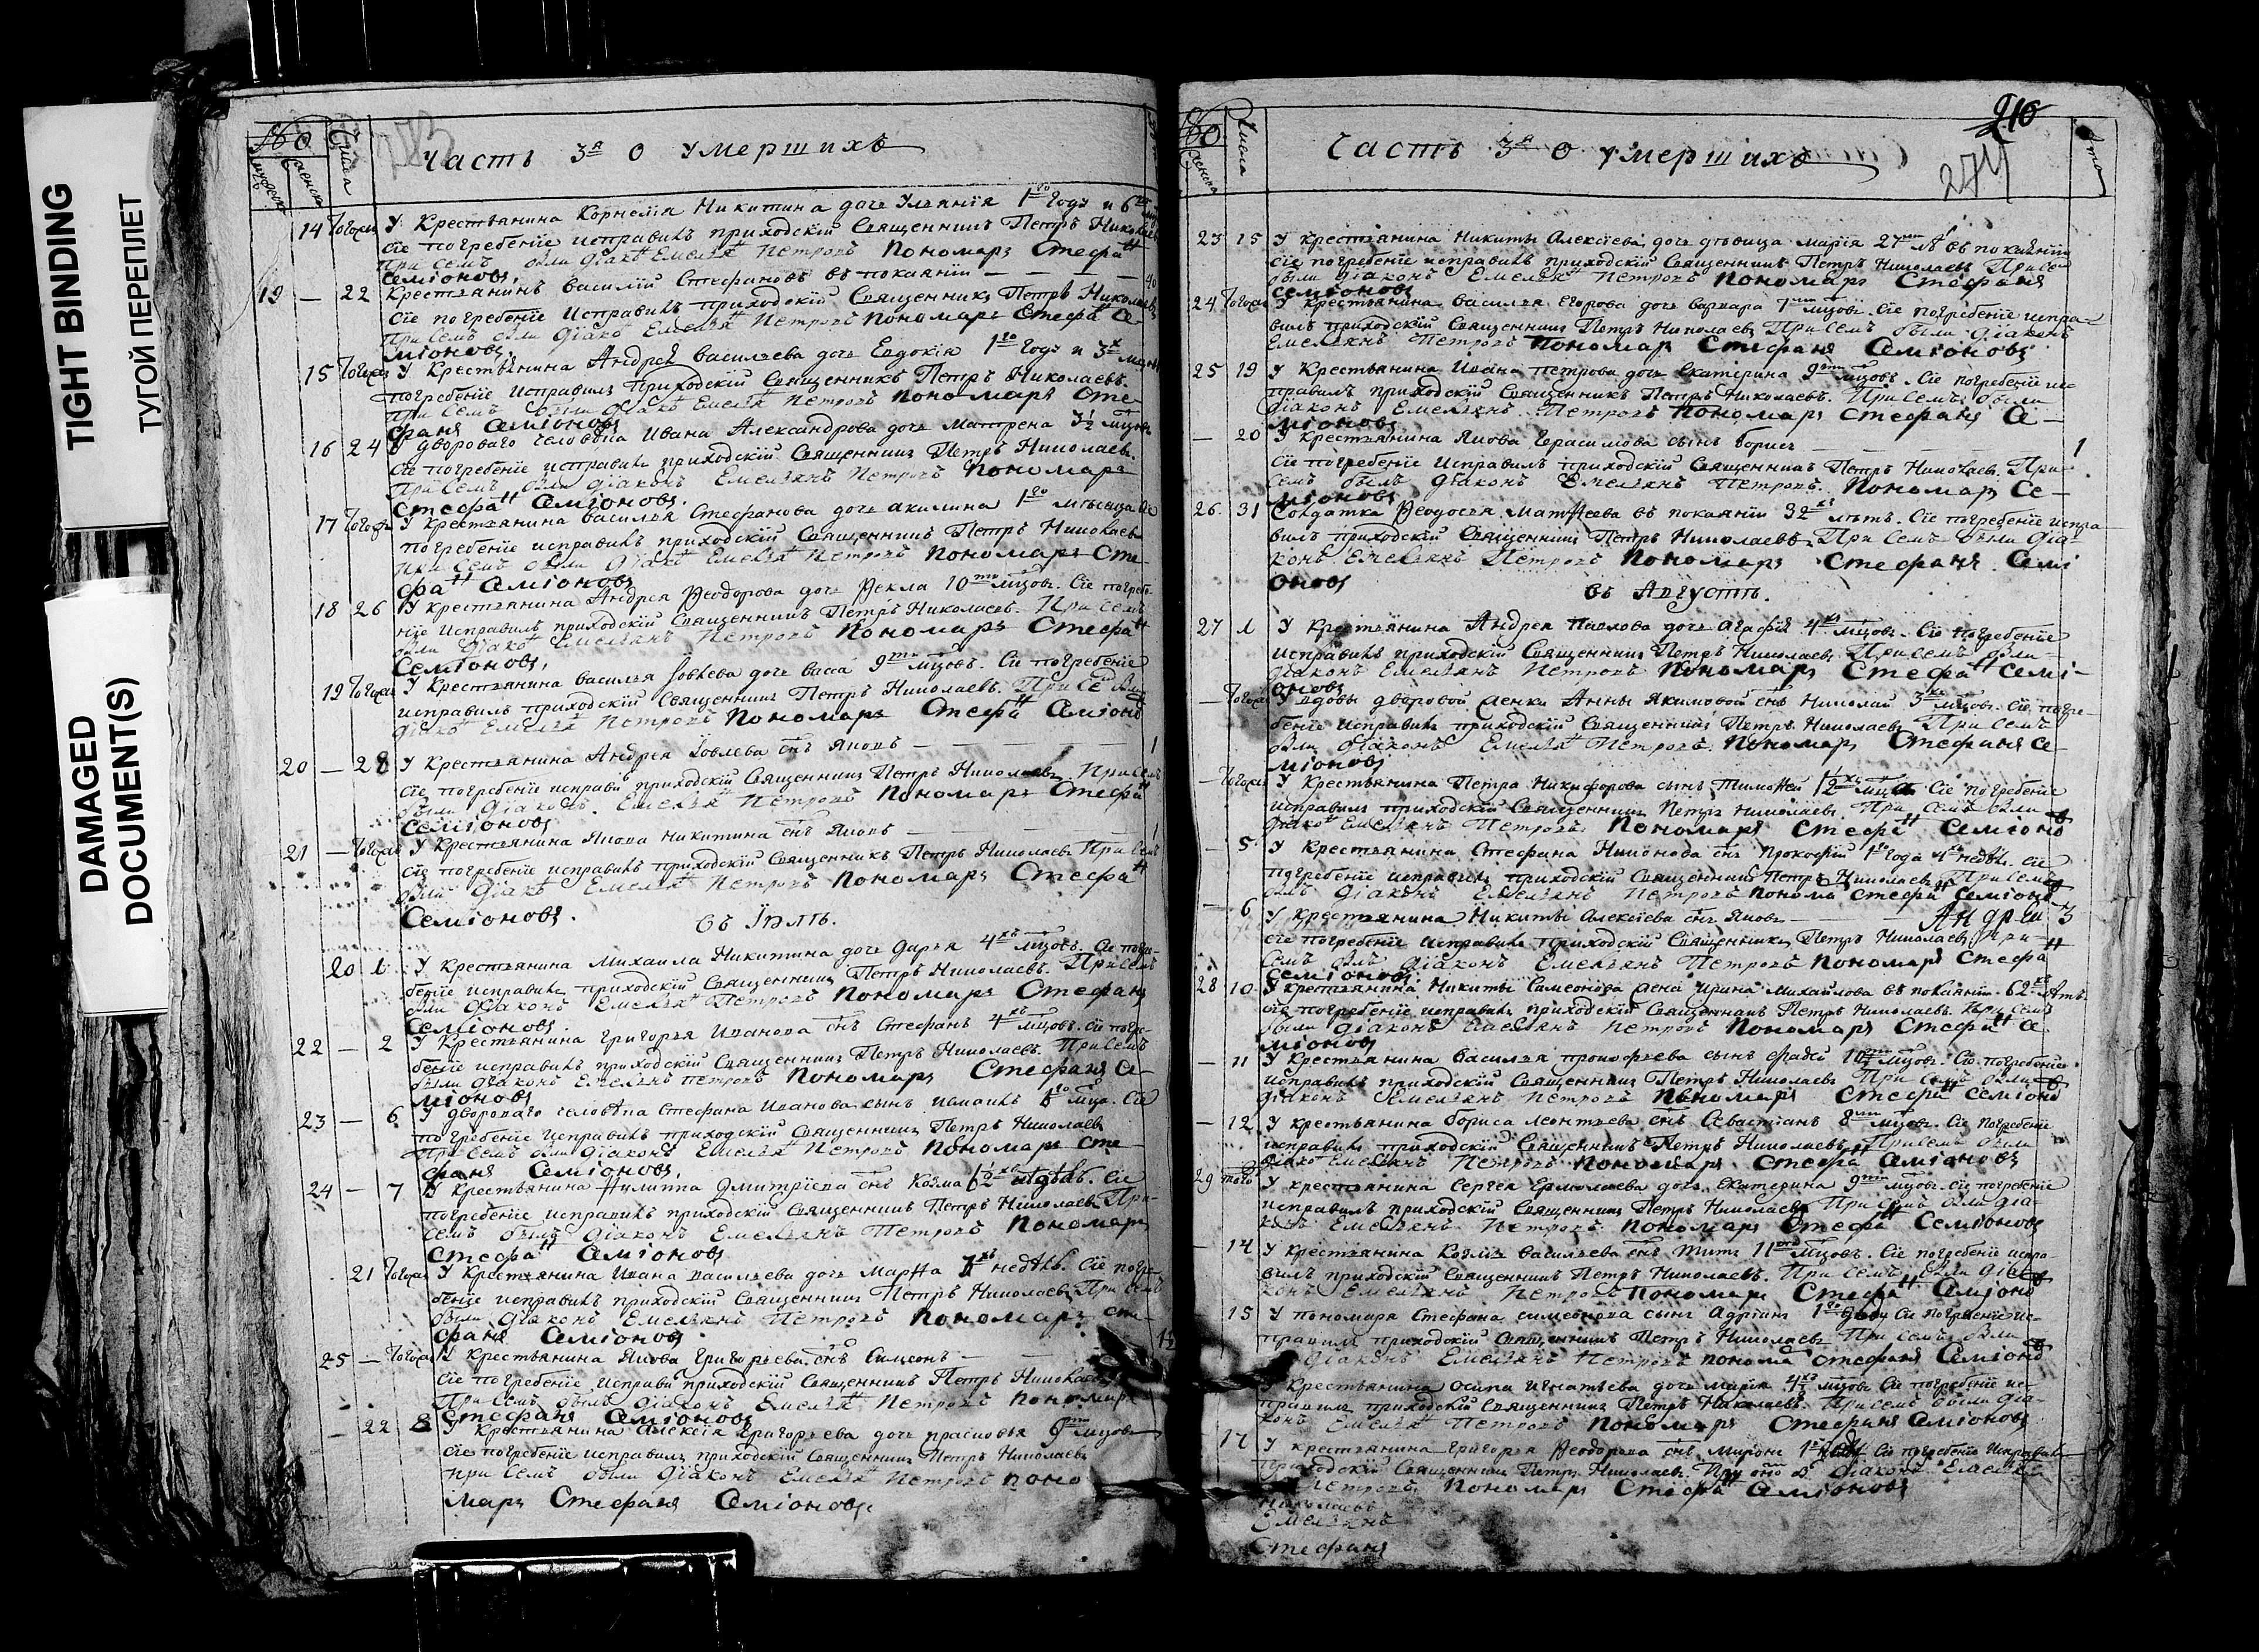 TIGHT BINDING
ТУГОЙ ПЕРЕПЛЕТ
DAMAGED
DOCUMENT(S)
Часть 3я о умершихъ
14 Тогожъ У Крестьянина Корнелія Никитина дочь Ульянія 1го Году и 6
сіе погребеніе исправилъ приходскій Священникъ Петръ Николаевъ
При семъ были діаконъ Емельянъ Петровъ Пономарь Стефанъ
Семіоновъ.
19 — 22 Крестьянинъ Василій Стефановъ въ покаяніи — — — 40
Сіе погребеніе Исправилъ приходскій Священникъ Петръ Николаевъ
При семъ были діаконъ Емельянъ Петровъ Пономарь Стефанъ Се-
міоновъ.
15 Тогожъ У Крестьянина Андрея Васильева дочь Евдокія 1го Году и 3х
погребеніе Исправилъ Приходскій Священникъ Петръ Николаевъ.
При семъ были діаконъ Емельянъ Петровъ Пономарь Сте-
фанъ Семіоновъ
16 24 У двороваго человѣка Ивана Александрова дочь Матрена 3½ мцовъ
Сіе погребеніе исправилъ приходскій Священникъ Петръ Николаевъ.
При семъ были діаконъ Емельянъ Петровъ Пономарь
Стефанъ Семіоновъ.
17 Тогожъ У Крестьянина Василья Стефанова дочь Акилина 1го мѣсяца Сіе
погребеніе исправилъ приходскій Священникъ Петръ Николаевъ
При семъ были діаконъ Емельянъ Петровъ Пономарь Сте-
фанъ Семіоновъ
18 26 У крестьянина Андрея Ѳеодорова дочь Ѳекла 10ти мцовъ. Сіе погребе-
ніе Исправилъ приходскій Священникъ Петръ Николаевъ. При семъ
были діаконъ Емельянъ Петровъ Пономарь Стефанъ
Семіоновъ.
19 Тогожъ У Крестьянина Василья Іовлева дочь Васа 9ти мцовъ. Сіе погребеніе
исправилъ приходскій Священникъ Петръ Николаевъ. При семъ были
діаконъ Емельянъ Петровъ Пономарь Стефанъ Семіоновъ
20 — 28 У Крестьянина Андрея Іовлева снъ Яковъ — — — 1
Сіе погребеніе исправи приходскій Священникъ Петръ Николаевъ При семъ
были діаконъ Емельянъ Петровъ Пономарь Стефанъ
Семіоновъ
21 — Тогожъ У Крестьянина Якова Никитина снъ Яковъ — — — 1
Сіе погребеніе исправилъ приходскій Священникъ Петръ Николаевъ При семъ
были діаконъ Емельянъ Петровъ Пономарь Стефанъ
Семіоновъ.
Въ Іюлѣ.
20 1 У Крестьянина Михаила Никитина дочь Дарья 4хъ мцовъ. Сіе погре-
беніе исправилъ приходскій Священникъ Петръ Николаевъ. При семъ
были діаконъ Емельянъ Петровъ Пономарь Стефанъ
Семіоновъ.
22 — 2 У Крестьянина Григорья Иванова снъ Стефанъ 4хъ мцовъ. Сіе погре-
беніе исправилъ приходскій Священникъ Петръ Николаевъ. При семъ
были діаконъ Емельянъ Петровъ Пономарь Стефанъ Се-
міоновъ
23 — 6 У двороваго человѣка Стефана Иванова сынъ Исаакъ мца. Сіе
погребеніе Исправилъ приходскій Священникъ Петръ Николаевъ
При семъ были діаконъ Емельянъ Петровъ Пономарь Сте-
фанъ Семіоновъ.
24 — 7 У Крестьянина Филиппа Дмитріева снъ Козма недѣль. Сіе
погребеніе исправилъ приходскій Священникъ Петръ Николаевъ При-
семъ былъ діаконъ Емельянъ Петровъ Пономарь
Стефанъ Семіоновъ
21 Тогожъ У Крестьянина Ивана Васильева дочь Марѳа недѣль. Сіе погре-
беніе исправилъ приходскій Священникъ Петръ Николаевъ При семъ
были діаконъ Емельянъ Петровъ Пономарь Сте-
фанъ Семіоновъ
25 — Тогожъ У Крестьянина Якова Григорьева снъ Симеонъ — 1½
Сіе погребеніе исправи приходскій Священникъ Петръ Николаевъ
При семъ былъ діаконъ Емельянъ Петровъ Пономарь
Стефанъ Семіоновъ
22 8 У Крестьянина Алексѣя Григорьева дочь Прасковья мцовъ
Сіе погребеніе исправилъ приходскій Священникъ Петръ Николаевъ
При семъ были діаконъ Емельянъ Петровъ Поно
марь Стефанъ Семіоновъ.
210
274
Часть 3я о умершихъ
23 15 У Крестьянина Никиты Алексіева дочь дѣвица Марія 27ми лѣ въ покаяніи
Сіе погребеніе исправилъ приходскій Священникъ Петръ Николаевъ При семъ
были діаконъ Емельянъ Петровъ Пономарь Стефанъ
Семіоновъ
24 Тогожъ У Крестьянина Василья Егорова дочь Варвара 7ми мцовъ. Сіе погребеніе испра-
вилъ приходскій Священникъ Петръ Николаевъ При семъ были діаконъ
Емельянъ Петровъ Пономарь Стефанъ Семіоновъ
25 19 У Крестьянина Ивана Петрова дочь Екатерина 9ти мцовъ. Сіе погребеніе ис-
правилъ приходскій Священникъ Петръ Николаевъ. При семъ были
діаконъ Емельянъ Петровъ Пономарь Стефанъ Се-
міоновъ
— 20 У Крестьянина Якова Герасимова сынъ Борисъ — — 1
Сіе погребеніе Исправилъ приходскій Священникъ Петръ Николаевъ. При-
семъ былъ діаконъ Емельянъ Петровъ. Пономарь Се-
міоновъ
26 31 Солдатка Ѳеодосья Матѳеева въ покаяніи 32 лѣтъ. Сіе погребеніе испра
вилъ приходскій Священникъ Петръ Николаевъ. При семъ были діа-
конъ Емельянъ Петровъ Пономарь Стефанъ Семі
оновъ
Въ Августѣ.
27 1 У Крестьянина Андрея Павлова дочь Агафія 4хъ мцовъ. Сіе погребеніе
исправилъ приходскій Священникъ Петръ Николаевъ При семъ были-
діаконъ Емельянъ Петровъ Пономарь Стефанъ Семі-
оновъ
— Тогожъ У вдовы дворовой женки Анны Якимовой снъ Николай 3хъ мцовъ. Сіе погре
беніе исправилъ приходскій Священникъ Петръ Николаевъ При семъ
были діаконъ Емельянъ Петровъ. Пономарь Стефанъ Се-
міоновъ
— Тогожъ У Крестьянина Петра Никифорова сынъ Тимоѳей Сіе погребеніе
исправилъ приходскій Священникъ Петръ Николаевъ. При семъ были
діаконъ Емельянъ Петровъ. Пономарь Стефанъ Семіоновъ
— 5 У Крестьянина Стефана Никонова снъ Прокофій 1го Года недѣли. Сіе
погребеніе исправилъ приходскій Священникъ Петръ Николаевъ При семъ
былъ діаконъ Емельянъ Петровъ Понома Стефанъ Семіоновъ
— 6 У Крестьянина Никиты Алексіева снъ Яковъ — — 3
сіе погребеніе исправилъ приходскій Священникъ Петръ Николаевъ При-
семъ былъ діаконъ Емельянъ Петровъ Пономарь Стефанъ
Семіоновъ
28 10 У Крестьянина Никиты Симеонова жена Ирина Михайлова въ покаяніи 62 лѣтъ
сіе погребеніе исправилъ приходскій Священникъ Петръ Николаевъ. При семъ
были діаконъ Емельянъ Петровъ Пономарь Стефанъ Се
міоновъ
— 11 У Крестьянина Василья Прокофьева сынъ Фадей 10ти мцовъ. Сіе погребеніе
исправилъ приходскій Священникъ Петръ Николаевъ При семъ были
діаконъ Емельянъ Петровъ Пономарь Стефанъ Семіоновъ
— 12 У Крестьянина Бориса Леонтьева снъ Севастіанъ 8ми мцовъ. Сіе погребеніе
исправилъ приходскій Священникъ Петръ Николаевъ. При семъ были
діаконъ Емельянъ Петровъ Пономарь Стефанъ Семіоновъ
29 того У крестьянина Сергея Ермолаева дочь Екатерина 9ти мцовъ. Сіе погребеніе
исправилъ приходскій Священникъ Петръ Николаевъ При семъ были діа-
конъ Емельянъ Петровъ Пономарь Стефанъ Семіоновъ
— 14 У крестьянина Козмы Васильева снъ Титъ 11ти мцовъ. Сіе погребеніе испра
вилъ приходскій Священникъ Петръ Николаевъ. При семъ были діа
конъ Емельянъ Петровъ Пономарь Стефанъ Семіоновъ
15 У пономаря Стефана Симеонова сынъ Адріянъ 1го Сіе погребеніе ис-
правилъ приходскій Священникъ Петръ Николаевъ При семъ были
діаконъ Емельянъ Петровъ Понома Стефанъ Семіоновъ
У Крестьянина Осипа Игнатьева дочь Марія мцовъ Сіе погребеніе ис-
правилъ приходскій Священникъ Петръ Николаевъ. При семъ были діа-
конъ Емельянъ Петровъ Пономарь Стефанъ Семіоновъ
17 У крестьянина Григорья Ѳеодорова снъ Миронъ Сіе погребеніе Исправилъ
приходскій Священникъ Петръ Николаевъ. При діаконъ Емельянъ
Петровъ Пономарь Стефанъ Семіоновъ
Николаевъ
Емельянъ
Стефанъ